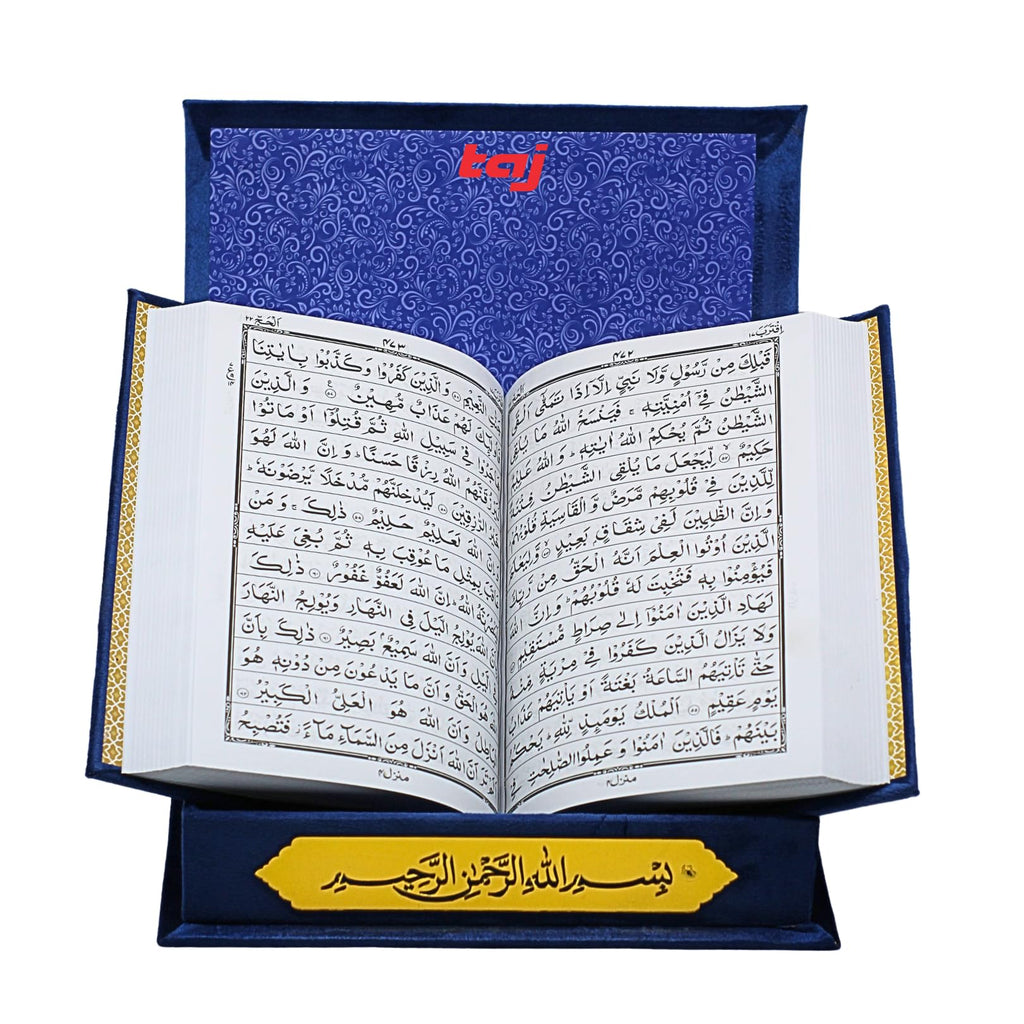 taj
اِقْتَرَبَ ١٧
۴۷۲
قَبْلِكَ مِنْ رَّسُوْلٍ وَّلَا نَبِيٍّ اِلَّاۤ اِذَا تَمَنّٰۤى
الشَّيْطٰنُ فِيْۤ اُمْنِيَّتِهٖ ۚ فَيَنْسَخُ اللّٰهُ مَا
الشَّيْطٰنُ ثُمَّ يُحْكِمُ اللّٰهُ اٰيٰتِهٖ ؕ وَ اللّٰهُ
حَكِيْمٌ ﴿٥٢﴾ لِّيَجْعَلَ مَا يُلْقِى الشَّيْطٰنُ
لِّلَّذِيْنَ فِيْ قُلُوْبِهِمْ مَّرَضٌ وَّ الْقَاسِيَةِ
وَ اِنَّ الظّٰلِمِيْنَ لَفِيْ شِقَاقٍۭ بَعِيْدٍ ﴿٥٣﴾
الَّذِيْنَ اُوْتُوا الْعِلْمَ اَنَّهُ الْحَقُّ مِنْ
فَيُؤْمِنُوْا بِهٖ فَتُخْبِتَ لَهٗ قُلُوْبُهُمْ ؕ وَ اِنَّ اللّٰهَ
لَهَادِ الَّذِيْنَ اٰمَنُوْۤا اِلٰى صِرَاطٍ مُّسْتَقِيْمٍ
وَلَا يَزَالُ الَّذِيْنَ كَفَرُوْا فِيْ مِرْيَةٍ مِّنْهُ
حَتّٰى تَاْتِيَهُمُ السَّاعَةُ بَغْتَةً اَوْ يَاْتِيَهُمْ
يَوْمٍ عَقِيْمٍ ﴿٥٥﴾ اَلْمُلْكُ يَوْمَىِٕذٍ لِّلّٰهِ ؕ
بَيْنَهُمْ ؕ فَالَّذِيْنَ اٰمَنُوْا وَ عَمِلُوا الصّٰلِحٰتِ فِيْ
منزل ۴
اَلْحَجّ ٢٢
۴۷۳
النَّعِيْمِ ﴿٥٦﴾ وَالَّذِيْنَ كَفَرُوْا وَكَذَّبُوْا بِاٰيٰتِنَا
لَهُمْ عَذَابٌ مُّهِيْنٌ ﴿٥٧﴾ وَالَّذِيْنَ
فِيْ سَبِيْلِ اللّٰهِ ثُمَّ قُتِلُوْۤا اَوْ مَاتُوْا
اللّٰهُ رِزْقًا حَسَنًا ؕ وَاِنَّ اللّٰهَ لَهُوَ
الرّٰزِقِيْنَ ﴿٥٨﴾ لَيُدْخِلَنَّهُمْ مُّدْخَلًا يَّرْضَوْنَهٗ ؕ
اللّٰهَ لَعَلِيْمٌ حَلِيْمٌ ﴿٥٩﴾ ذٰلِكَ ۚ وَ مَنْ
بِمِثْلِ مَا عُوْقِبَ بِهٖ ثُمَّ بُغِيَ عَلَيْهِ
اللّٰهُ ؕ اِنَّ اللّٰهَ لَعَفُوٌّ غَفُوْرٌ ﴿٦٠﴾ ذٰلِكَ
اللّٰهَ يُوْلِجُ الَّيْلَ فِي النَّهَارِ وَيُوْلِجُ النَّهَارَ
الَّيْلِ وَاَنَّ اللّٰهَ سَمِيْعٌۢ بَصِيْرٌ ﴿٦١﴾ ذٰلِكَ بِاَنَّ
هُوَ الْحَقُّ وَ اَنَّ مَا يَدْعُوْنَ مِنْ دُوْنِهٖ هُوَ
وَ اَنَّ اللّٰهَ هُوَ الْعَلِيُّ الْكَبِيْرُ ﴿٦٢﴾
تَرَ اَنَّ اللّٰهَ اَنْزَلَ مِنَ السَّمَآءِ مَآءً ؗ فَتُصْبِحُ
منزل ۴
بِسْمِ اللهِ الرَّحْمٰنِ الرَّحِيْمِ